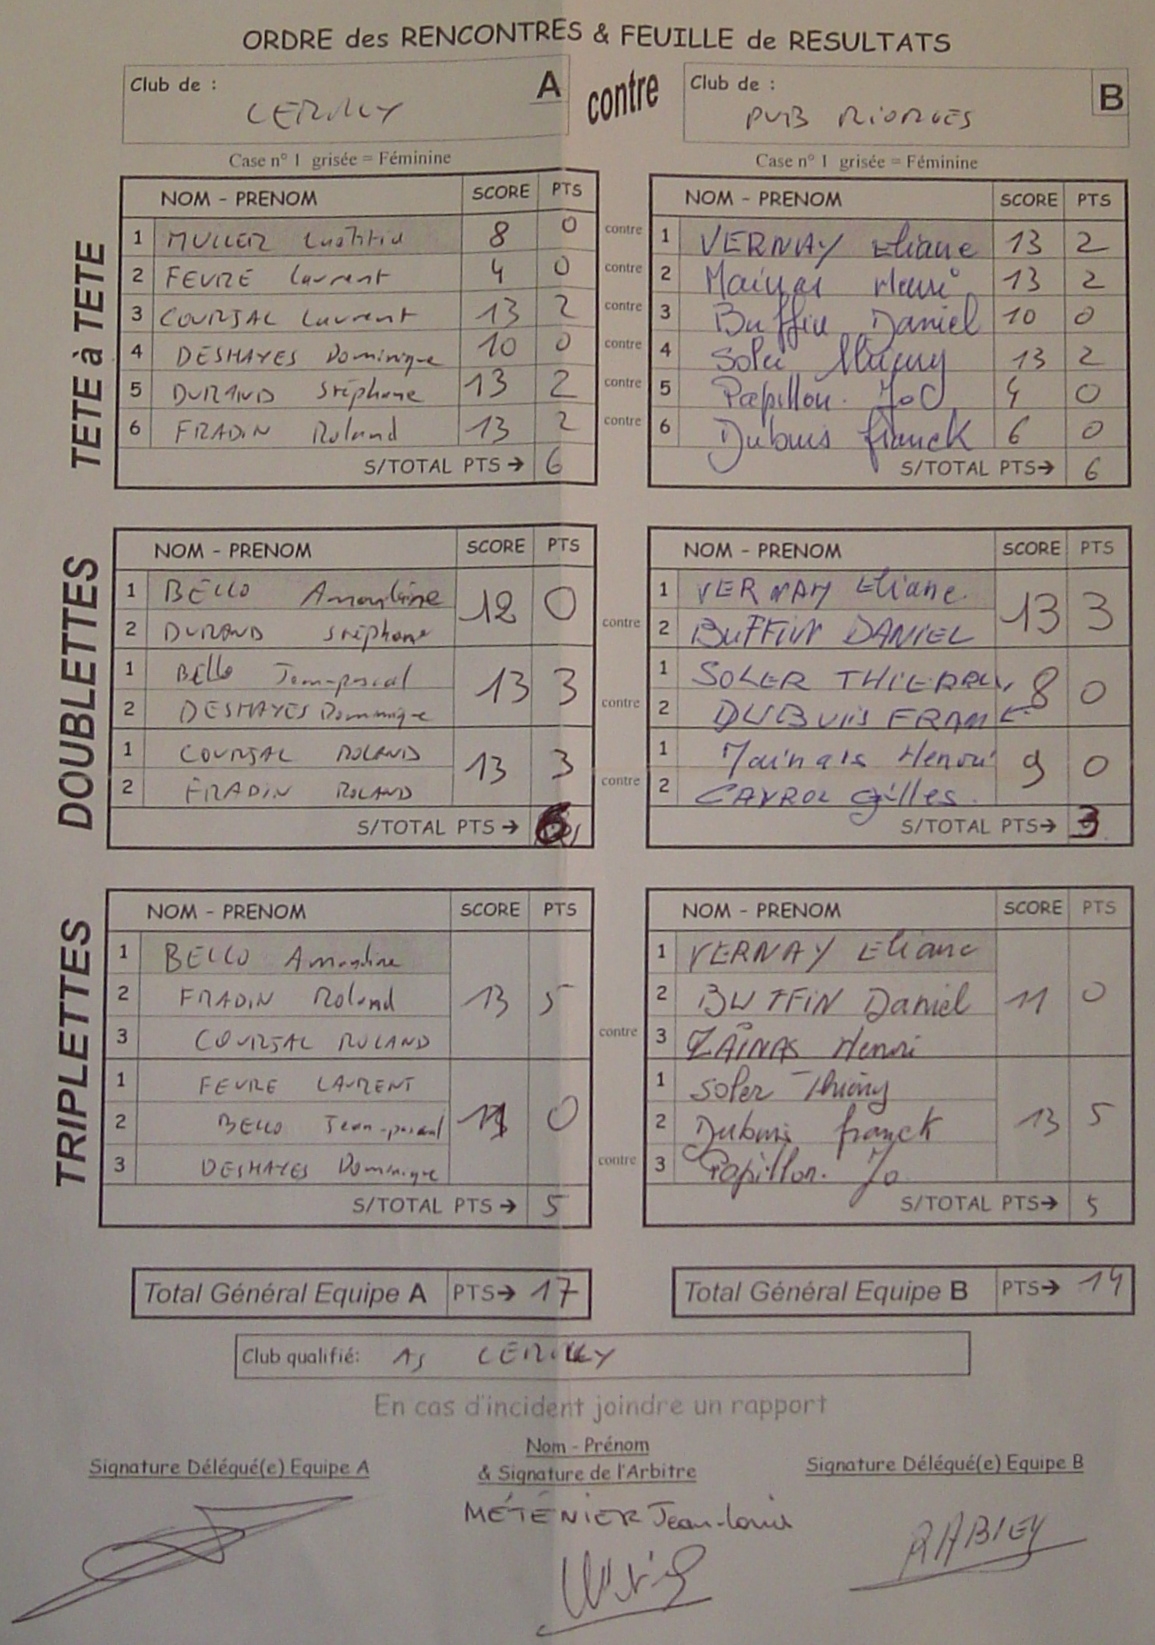 ORDRE des RENCONTRES & FEUILLE de RESULTATS
Club de : A contre Club de : B
CERILLY PUB RIORGES
Case n° 1 grisée = Féminine Case n° 1 grisée = Féminine
TETE à TETE
NOM - PRENOM SCORE PTS NOM - PRENOM SCORE PTS
1 MULLER Laetitia 8 0 contre 1 VERNAY Eliane 13 2
2 FEVRE Laurent 4 0 contre 2 Mainas Henri 13 2
3 COURJAL Laurent 13 2 contre 3 Buffin Daniel 10 0
4 DESHAYES Dominique 10 0 contre 4 Soler Thierry 13 2
5 DURAND Stéphane 13 2 contre 5 Papillon. Jo 4 0
6 FRADIN Roland 13 2 contre 6 Dubuis franck 6 0
S/TOTAL PTS → 6 S/TOTAL PTS → 6
DOUBLETTES
NOM - PRENOM SCORE PTS NOM - PRENOM SCORE PTS
1 BELLO Amandine 12 0 1 VERNAY Eliane. 13 3
2 DURAND Stéphane contre 2 BUFFIN DANIEL
1 Bello Jean-pascal 13 3 1 SOLER THIERRY 8 0
2 DESHAYES Dominique contre 2 DUBUIS FRANC
1 COURJAL ROLAND 13 3 1 Mainas Henri 9 0
2 FRADIN ROLAND contre 2 CAYROL Gilles.
S/TOTAL PTS → 6 S/TOTAL PTS → 3
TRIPLETTES
NOM - PRENOM SCORE PTS NOM - PRENOM SCORE PTS
1 BELLO Amandine 1 VERNAY Eliane
2 FRADIN Roland 13 5 2 BUFFIN Daniel 11 0
3 COURJAL ROLAND contre 3 ZAÏNAS Henri
1 FEVRE LAURENT 1 Soler Thierry
2 BELLO Jean-pascal 0 2 Dubuis franck 13 5
3 DESHAYES Dominique contre 3 Papillon. Jo
S/TOTAL PTS → 5 S/TOTAL PTS → 5
Total Général Equipe A PTS → 17 Total Général Equipe B PTS → 14
Club qualifié: AS CERILLY
En cas d'incident joindre un rapport
Signature Délégué(e) Equipe A Nom - Prénom & Signature de l'Arbitre Signature Délégué(e) Equipe B
MÉTÉNIER Jean-Louis
RABIEY